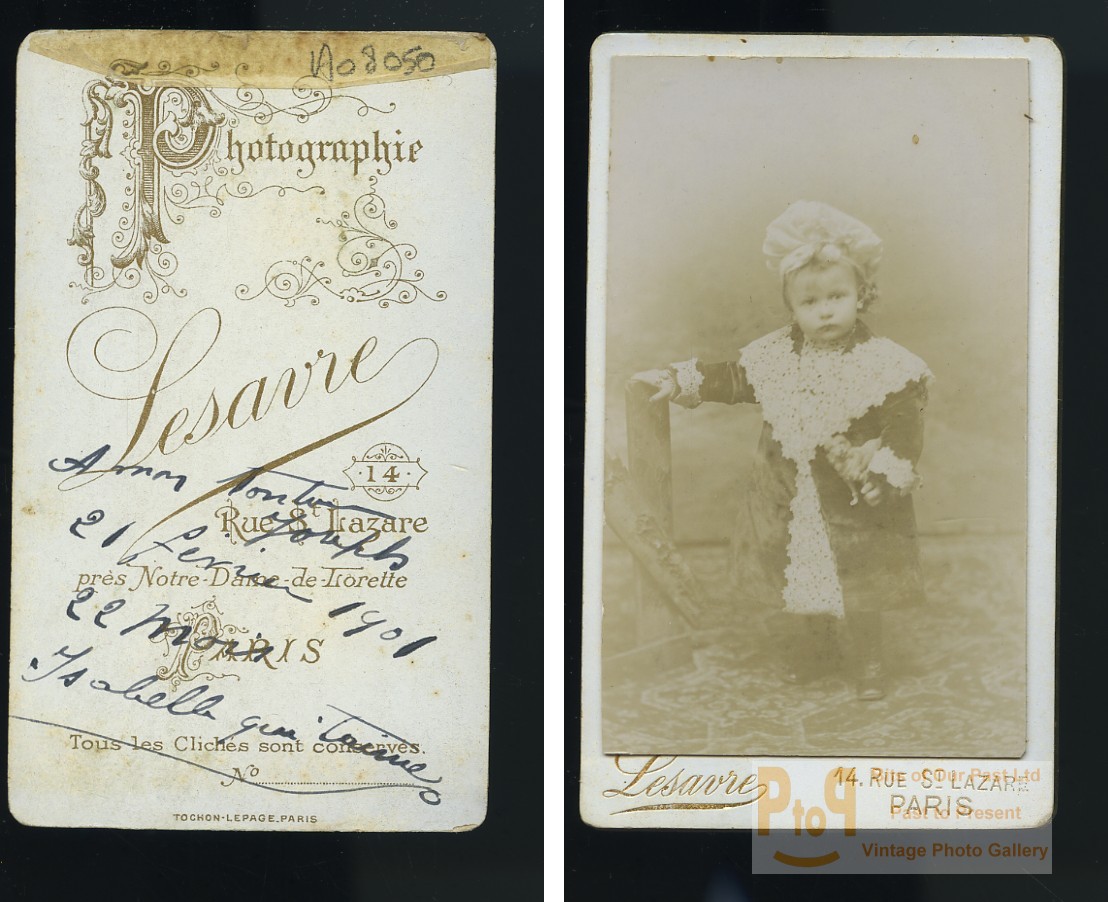 A08050
Photographie
Lesavre
14
Rue St. Lazare
près Notre-Dame-de-Lorette
PARIS
A mon Tonton
Joseph
21 fevrier 1901
22 mois
Isabelle qui t'aime
Tous les Clichés sont conservés.
No
TOCHON-LEPAGE.PARIS
Lesavre
14. RUE ST. LAZARE
PARIS
PtoP
Bits of Our Past Ltd
Past to Present
Vintage Photo Gallery